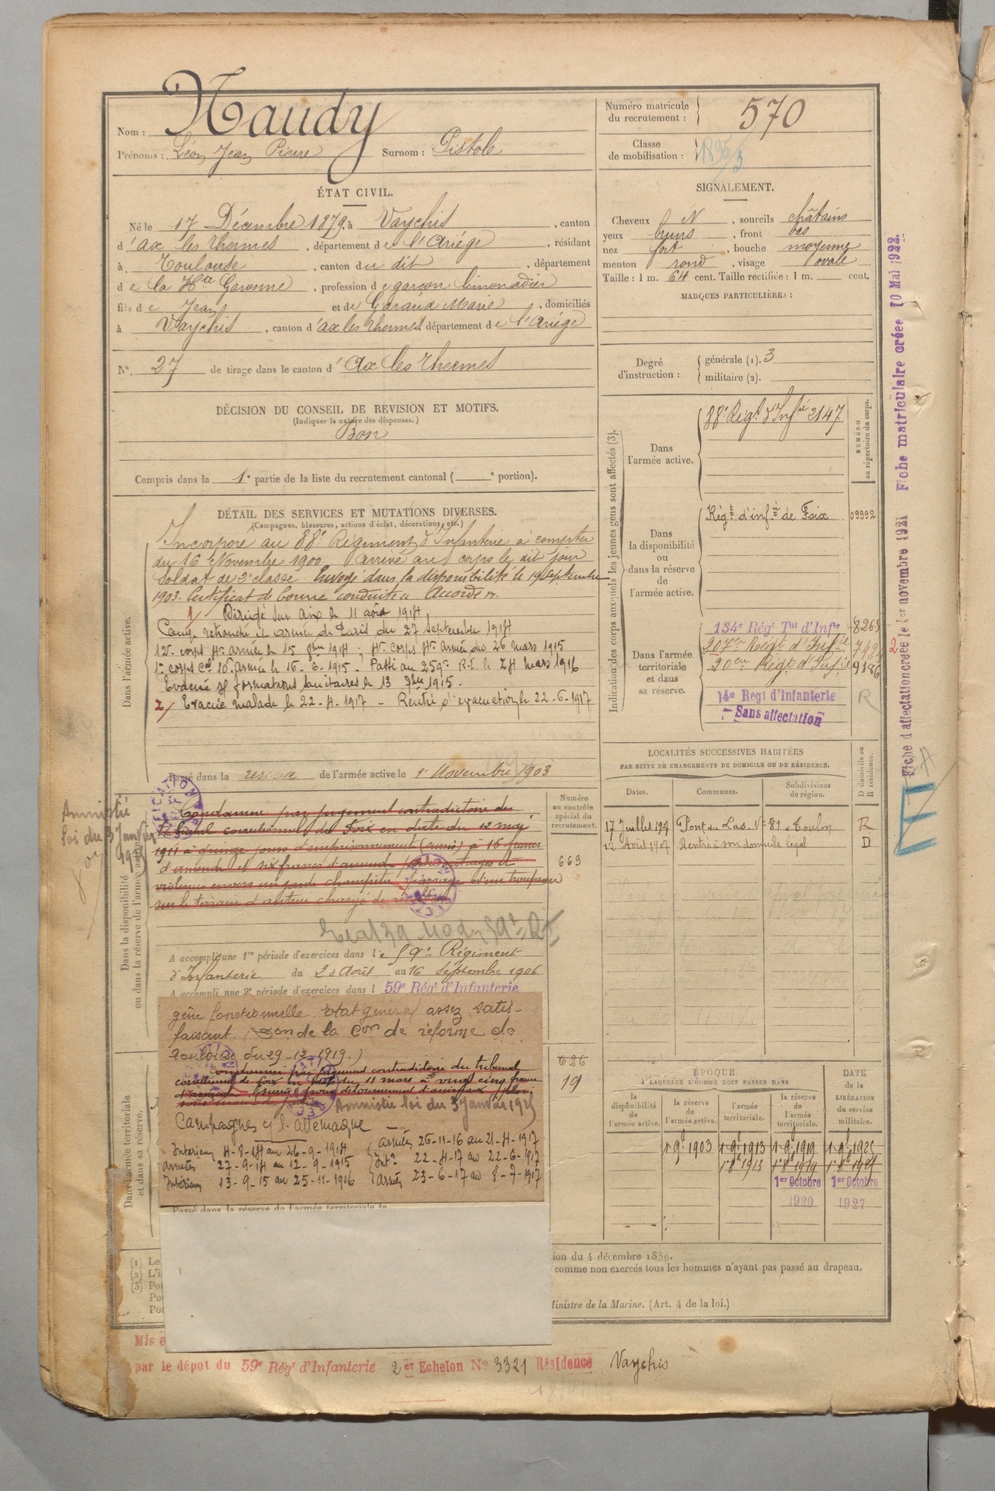 Nom : Naudy
Prénoms : Léon Jean Pierre Surnom : Pistole
Numéro matricule du recrutement : 570
Classe de mobilisation :
ÉTAT CIVIL.
Né le 17 Décembre 1879 à Vaychis, canton
d'ax les thermes, département de l'Ariége, résidant
à Toulouse, canton du dit, département
de la Hte Garonne, profession de garçon limonadier
fils de Jean et de Garaud Marie, domiciliés
à Vaychis, canton d'ax les thermes, département de l'Ariége
N° 27 de tirage dans le canton d'Ax les Thermes
SIGNALEMENT.
Cheveux N, sourcils châtains
yeux bruns, front bas
nez fort, bouche moyenne
menton rond, visage ovale
Taille : 1 m. 64 cent. Taille rectifiée : 1 m. cent.
MARQUES PARTICULIÈRES :
Degré d'instruction : générale (1). 3
militaire (2).
DÉCISION DU CONSEIL DE REVISION ET MOTIFS.
(Indiquer la nature des dispenses.)
Bon
Compris dans la 1e partie de la liste du recrutement cantonal ( e portion).
DÉTAIL DES SERVICES ET MUTATIONS DIVERSES.
(Campagnes, blessures, actions d'éclat, décorations, etc.)
Dans l'armée active.
Incorporé au 88e Régiment d'Infanterie à compter
du 16 Novembre 1900. Arrivé au corps le dit jour
soldat de 2e classe. Envoyé dans la disponibilité le 19 septembre
1903. Certificat de bonne conduite « Accordé ».
1/ Dirigé sur Aix le 11 août 1914
Camp retranché et armée de Paris du 27 septembre 1914
Passé au 259e R.I. le 24 mars 1916
Evacué sf formations sanitaires le 13 7bre 1915.
2/ Evacué malade le 22-4-1917 - Rentré d'évacuation le 22-6-1917
Passé dans la réserve de l'armée active le 1er Novembre 1903
Indication des corps auxquels les jeunes gens sont affectés (3).
NUMÉRO au répertoire du corps.
Dans l'armée active.
88e Régt d'Infie 2147
Dans la disponibilité ou dans la réserve de l'armée active.
Régt d'infie de Foix 09992
Dans l'armée territoriale et dans sa réserve.
134e Régt Tal d'Infie
207e Régt d'Infie
14e Régt d'Infanterie
Sans affectation
R
LOCALITÉS SUCCESSIVES HABITÉES
PAR SUITE DE CHANGEMENTS DE DOMICILE OU DE RÉSIDENCE.
Dates. Communes. Subdivisions de région. D domicile ou R résidence.
Pont du Las. Toulon R
Rentré à son domicile légal D
Fiche d'affectation créée le 1er novembre 1921 Fiche matriculaire créée 10 Mai 1922.
Amnistié
loi du 3 Janvier
1925
Dans la disponibilité ou dans la réserve de l'armée active.
Condamné par jugement contradictoire du
Tribunal correctionnel de Foix en date du 12 mai
1911 à quinze jours d'emprisonnement (sursis) à 16 francs
d'amende et six francs d'amende pour outrages et
violence envers un garde champêtre
Numéro au contrôle spécial du recrutement.
663
A accompli une 1re période d'exercices dans le 59e Régiment
d'Infanterie du 20 Août au 16 Septembre 1906
A accompli une 2e période d'exercices dans l 59e Régt d'Infanterie
gêne fonctionnelle. état général assez satis-
faisant. de la Con de réforme de
Toulouse du 29-12-1919.)
Condamné par jugement contradictoire du tribunal
correctionnel de Foix en date du 11 mars à vingt cinq francs
Amnistie loi du 3 Janvier 1925
Campagnes c/ l'allemagne
Intérieur 4-8-14 au 26-9-1914
armées 27-9-14 au 12-9-1915
Intérieur 13-9-15 au 25-11-1916
armées 26-11-16 au 21-4-1917
Intr 22-4-17 au 22-6-1917
armées 23-6-17 au 8-7-1917
Dans l'armée territoriale et dans sa réserve.
Passé dans la réserve de l'armée territoriale le
626
19
ÉPOQUE
À LAQUELLE L'HOMME DOIT PASSER DANS
DATE de la LIBÉRATION du service militaire.
la disponibilité de l'armée active. la réserve de l'armée active. l'armée territoriale. la réserve de l'armée territoriale.
1 9e 1903
1er Octobre 1920
1er Octobre 1927
ion du 4 décembre 1889.
comme non exercés tous les hommes n'ayant pas passé au drapeau.
Ministre de la Marine. (Art. 4 de la loi.)
Mis e
par le dépot du 59e Régt d'Infanterie 2e Echelon No 3321 Résidence Vaychis